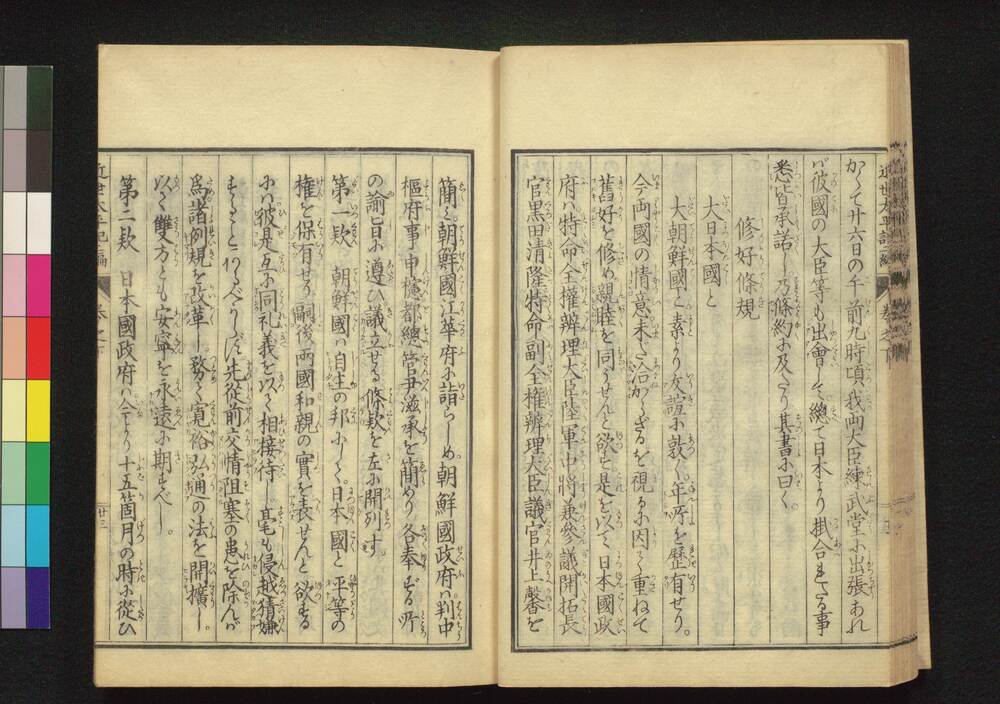 かくて廿六日の午前九時頃我両大臣練武堂に出張あれ
ば彼國の大臣等も出會して總て日本より掛合れたる事
悉皆承諾し乃條約に及たり其書に曰く
修好條規
大日本國と
大朝鮮國と素より友誼に敦く年所を歷有せり。
今両國の情意未た洽からさるを視るに因て重ねて
舊好を修め親睦を同うせんと欲す是を以て日本國政
府ハ特命全權辨理大臣陸軍中將兼參議開拓長
官黒田清隆特命副全權辨理大臣議官井上馨を
簡ミ。朝鮮國江華府に詣らしめ。朝鮮國政府ハ判中
樞府事申櫶都總管尹滋承を簡めり各奉ずる所
の諭旨に遵ひ議立せる條欵を左に開列す。
第一欵 朝鮮國ハ自主の邦にして日本國と平等の
權を保有せり嗣後両國和親の實を表せんと欲する
にハ彼是互に同礼義を以て相接待し毫も侵越猜嫌
することあるべからず先從前交情阻塞の患を除んが
爲諸例規を改革し務て寛裕弘通の法を開擴し。
以て雙方とも安寧を永遠に期すべし。
第二欵 日本國政府ハ今より十五箇月の時に從ひ
近世太平記
巻之下
廿三